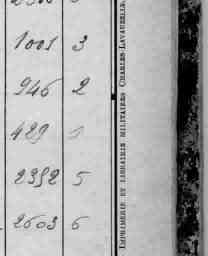 1001 3
946 2
429
2352 5
2603 6
IMPRIMERIE ET LIBRAIRIE MILITAIRES CHARLES-LAVAUZELLE.